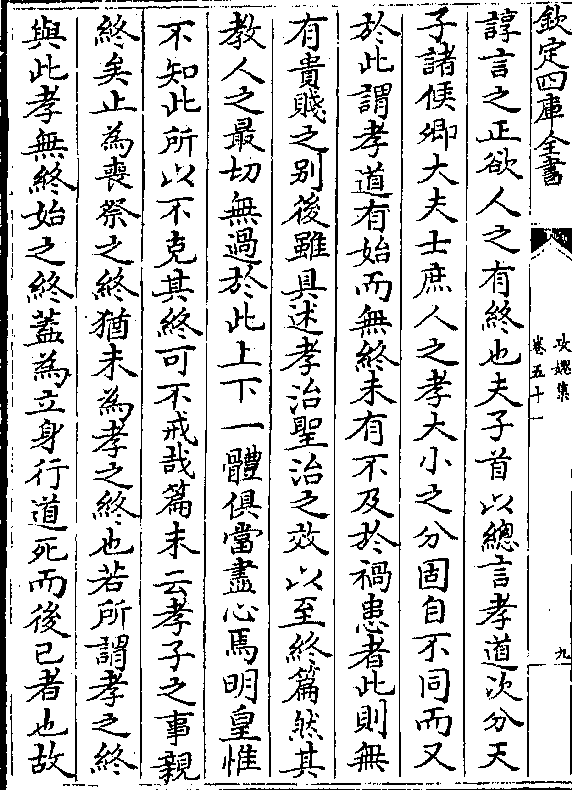 欽定四庫全書
攻媿集
卷五十一
九
諄言之正欲人之有終也夫子首以總言孝道次分天
子諸侯卿大夫士庶人之孝大小之分固自不同而又
於此謂孝道有始而無終未有不及於禍患者此則無
有貴賤之别後雖具述孝治聖治之效以至終篇然其
教人之最切無過於此上下一體俱當盡心焉明皇惟
不知此所以不克其終可不戒哉篇末云孝子之事親
終矣止為喪祭之終猶未為孝之終也若所謂孝之終
與此孝無終始之終蓋為立身行道死而後已者也故